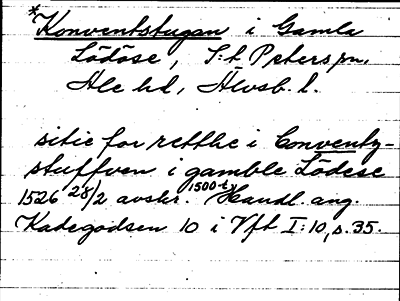 *Konventstugan i Gamla
Lödöse, S:t Peters sn,
Ale hd, Älvsb. l.
sitie for retthe i Conventz-
stuffven i gamble Lödese
1526 28/2 avskr. 1500-t. Handl. ang.
Kadegodsen 10 i Vft I:10, s. 35.